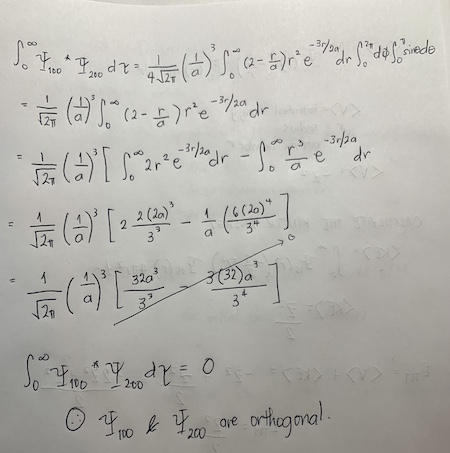 ∫₀^∞ Ψ₁₀₀* Ψ₂₀₀ dτ = 1/(4√2π) (1/a)³ ∫₀^∞ (2 - r/a) r² e^(-3r/2a) dr ∫₀^2π dφ ∫₀^π sinθ dθ
= 1/√2π (1/a)³ ∫₀^∞ (2 - r/a) r² e^(-3r/2a) dr
= 1/√2π (1/a)³ [ ∫₀^∞ 2r² e^(-3r/2a) dr - ∫₀^∞ r³/a e^(-3r/2a) dr
= 1/√2π (1/a)³ [ 2 2(2a)³/3³ - 1/a (6(2a)⁴/3⁴ ]
= 1/√2π (1/a)³ [ 32a³/3³ - 3(32)a³/3⁴ ] 0
∫₀^∞ Ψ₁₀₀* Ψ₂₀₀ dτ = 0
Ψ₁₀₀ & Ψ₂₀₀ are orthogonal.